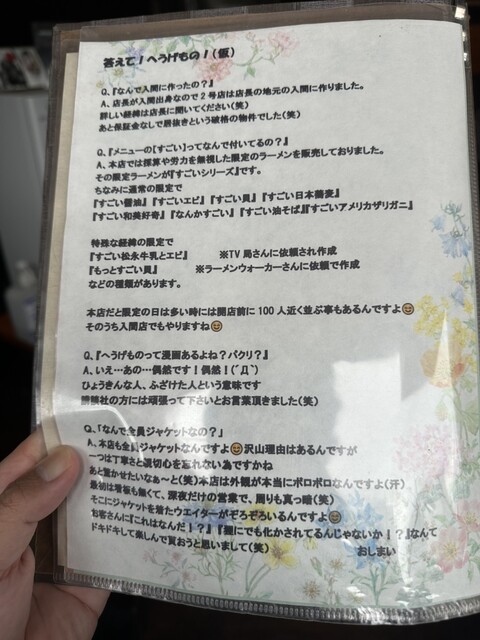 答えて！へうげもの！(仮)
Q、『なんで入間に作ったの？』
A、店長が入間出身なので２号店は店長の地元の入間に作りました。
詳しい経緯は店長に聞いてください(笑)
あと保証金なしで居抜きという破格の物件でした(笑)
Q、『メニューの【すごい】ってなんで付いてるの？』
A、本店では採算や労力を無視した限定のラーメンを販売しておりました。
その限定ラーメンが『すごいシリーズ』です。
ちなみに通常の限定で
『すごい醤油』『すごいエビ』『すごい貝』『すごい日本蕎麦』
『すごい和美好奇』『なんかすごい』『すごい油そば』『すごいアメリカザリガニ』
特殊な経緯の限定で
『すごい松永牛乳とエビ』 ※TV 局さんに依頼され作成
『もっとすごい貝』 ※ラーメンウォーカーさんに依頼で作成
などの種類があります。
本店だと限定の日は多い時には開店前に 100 人近く並ぶ事もあるんですよ😊
そのうち入間店でもやりますね😊
Q、『へうげものって漫画あるよね？パクリ？』
A、いえ…あの…偶然です！偶然！(´Д｀)
ひょうきんな人、ふざけた人という意味です
講談社の方には頑張って下さいとお言葉頂きました(笑)
Q、「なんで全員ジャケットなの？」
A、本店も全員ジャケットなんですよ😊沢山理由はあるんですが
一つは丁寧さと親切心を忘れない為ですかね
あと驚かせたいなぁ～と(笑)本店は外観が本当にボロボロなんですよ(汗)
最初は看板も無くて、深夜だけの営業で、周りも真っ暗(笑)
そこにジャケットを着たウエイターがぞろぞろいるんですよ😊
お客さんに『これはなんだ！？』『狸にでも化かされてるんじゃないか！？』なんて
ドキドキして楽しんで貰おうと思いまして(笑) おしまい